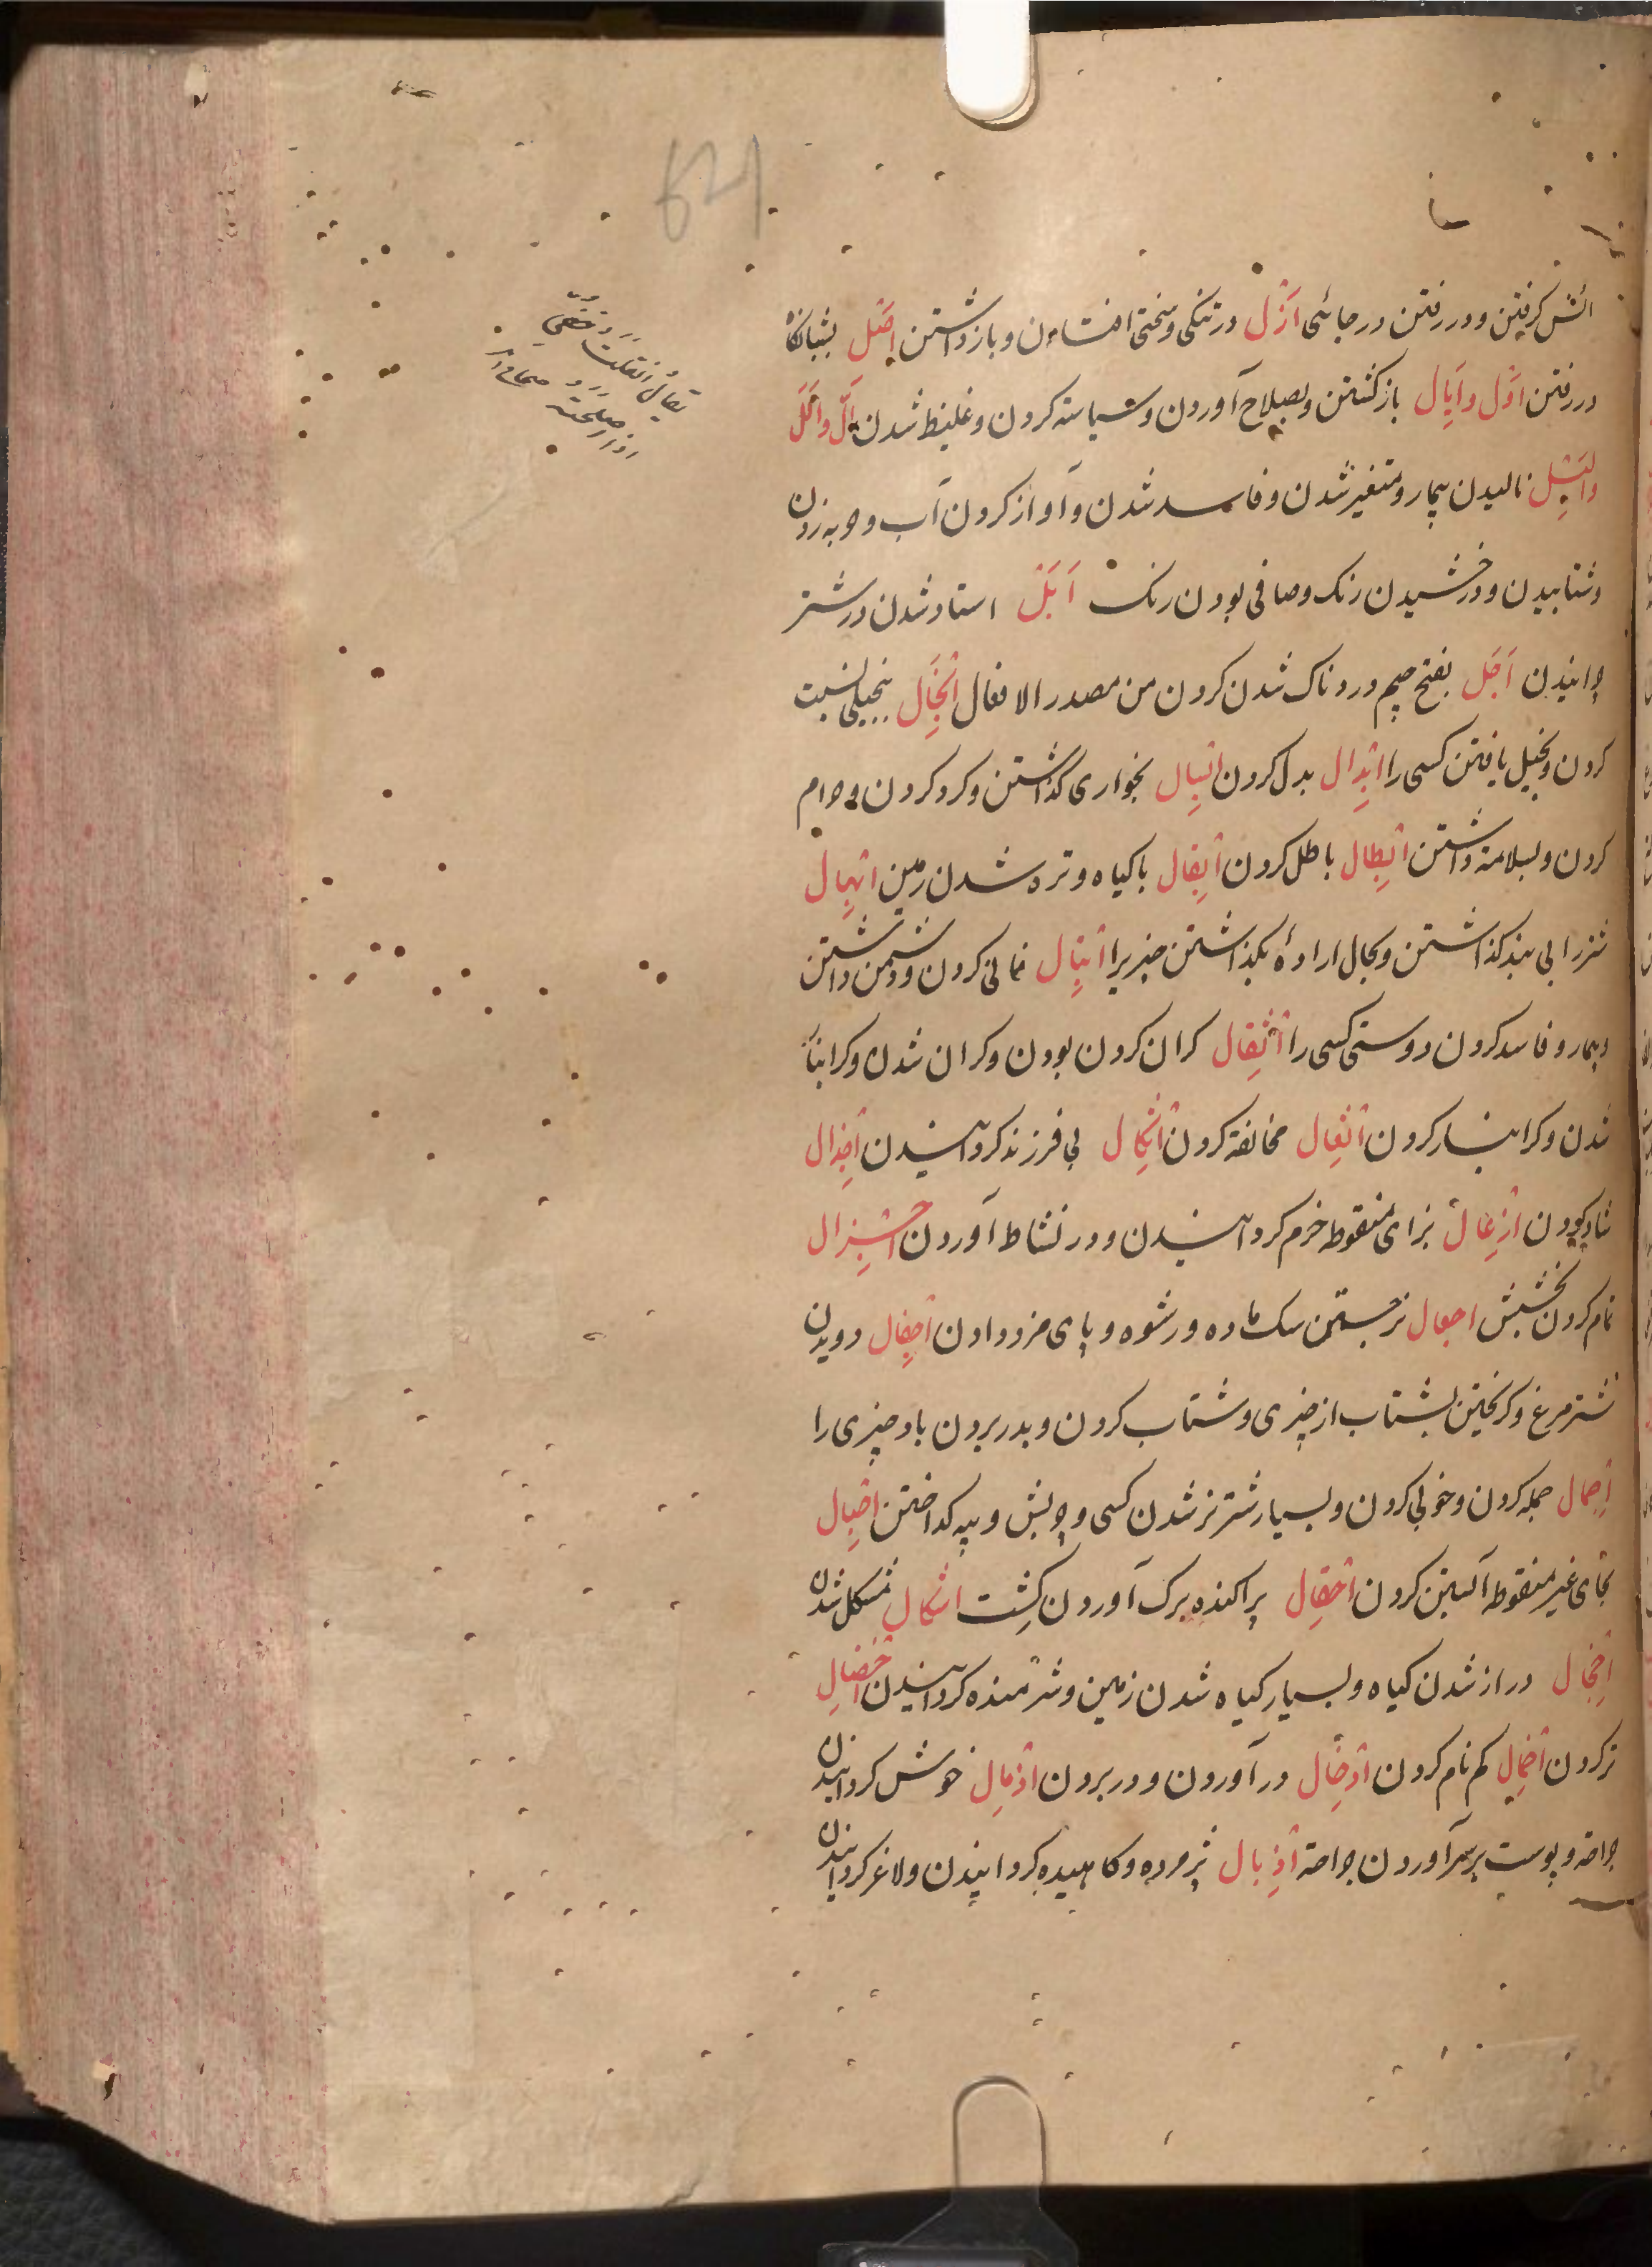 621
انس کرفتن و در رفتن در جائی اَزْل در تنکی و سختی افتادن و باز داشتن اَصْل بشبانکاه
در رفتن اَوْل و اَیَال باز کشتن و بصلاح آوردن و سیاسته کردن و غلیظ شدن اَلّ و اَلَل
و اَلِیْل نالیدن بیمار و متغیر شدن و فاسد شدن و آواز کردن آب و حربه زدن
و شتابیدن و درخشیدن رنک و صافی بودن رنک اَبَل استاد شدن در شتر
چرانیدن اَجَل بفتح جیم دردناک شدن کردن من مصدر الافعال اِبْخَال ببخیلی نسبت
کردن و بخیل یافتن کسی را اِبْدَال بدل کردن اِبْسَال بخواری کذاشتن و کرو کردن و حرام
کردن و بسلامة داشتن اِبْطَال باطل کردن اِبْقَال با کیاه و تره شدن زمین اِبْهَال
شتر را بی بند کذاشتن و بحال ارادهٔ بکذاشتن چیزیرا اِتْبَال فانی کردن و دشمن داشتن
و بیمار و فاسد کردن دوستی کسی را اِثْقَال کران کردن بودن و کران شدن و کرانبار
شدن و کرانبار کردن اِثْعَال مخالفة کردن اِثْکَال بی فرزند کردانیدن اِجْذَال
شاد کردن اِزْعَال بزای منقوطه خرم کردانیدن و در نشاط آوردن اِجْزَال
تمام کردن بخشش اِجْعَال نر جستن سک ماده و رشوه و پای مزد دادن اِجْفَال دویدن
شتر مرغ و کریختن بشتاب از چیزی و شتاب کردن و بدر بردن باد چیزی را
اِجْمَال جمله کردن و خوبی کردن و بسیار شتر نر شدن کسی و چربش و پیه کداختن اِحْبَال
بحای غیر منقوطه آبستن کردن اِحْقَال پراکنده برک آوردن کِشت اِشْکَال مشکل شدن
اِخْجَال دراز شدن کیاه و بسیار کیاه شدن زمین و شرمنده کردانیدن اِخْضَال
تر کردن اِخْمَال کم نام کردن اِدْخَال در آوردن و در بردن اِدْمَال خوش کردانیدن
جراحة و پوست بر سر آوردن جراحة اِذْبَال پژمرده و کاهیده کردانیدن و لاغر کردانیدن